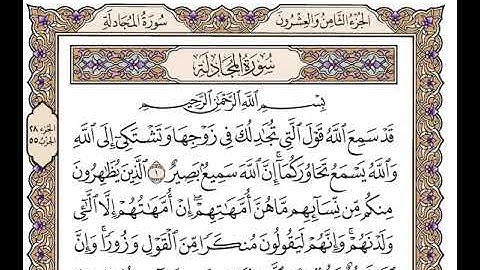 الجزء الثامن والعشرون
سورة المجادلة
سُورَةُ المُجَادلَة
بِسْمِ اللَّهِ الرَّحْمَٰنِ الرَّحِيمِ
قَدْ سَمِعَ اللَّهُ قَوْلَ الَّتِي تُجَادِلُكَ فِي زَوْجِهَا وَتَشْتَكِي إِلَى اللَّهِ
وَاللَّهُ يَسْمَعُ تَحَاوُرَكُمَا إِنَّ اللَّهَ سَمِيعٌ بَصِيرٌ ١ الَّذِينَ يُظَاهِرُونَ
مِنكُم مِّن نِّسَائِهِم مَّا هُنَّ أُمَّهَاتِهِمْ إِنْ أُمَّهَاتُهُمْ إِلَّا اللَّائِي
وَلَدْنَهُمْ وَإِنَّهُمْ لَيَقُولُونَ مُنكَرًا مِّنَ الْقَوْلِ وَزُورًا وَإِنَّ
الجزء ٢٨
الحزب ٥٥